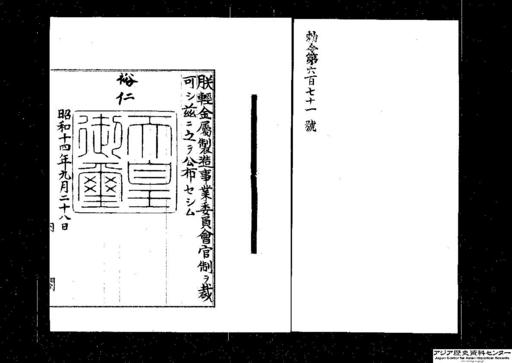 勅令第六百七十一號
朕輕金屬製造事業委員會官制ヲ裁
可シ茲ニ之ヲ公布セシム
裕仁
天皇
御璽
昭和十四年九月二十八日
内閣
アジア歴史資料センター
Japan Center for Asian Historical Records